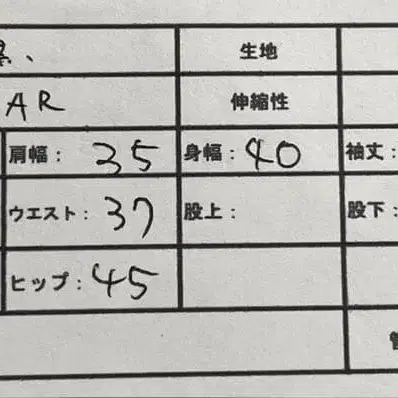 、 生地
AR 伸縮性
肩幅: 35 身幅: 40 袖丈:
ウエスト: 37 股上: 股下:
ヒップ: 45